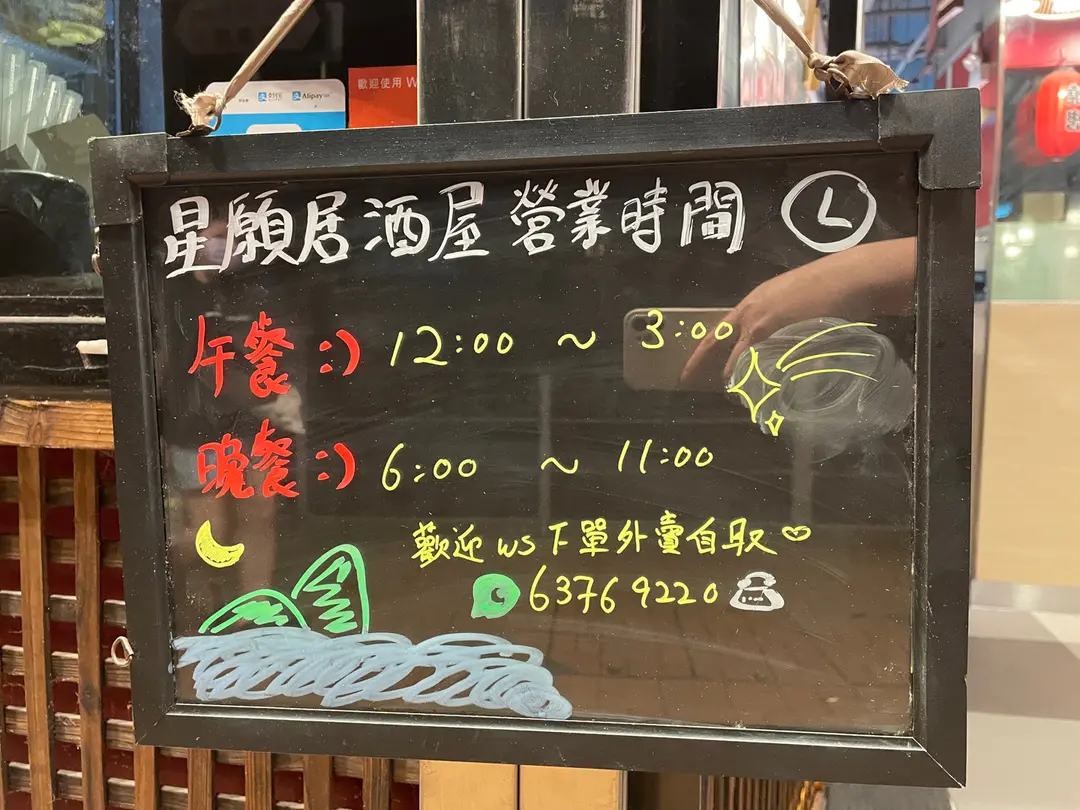 Alipay
歡迎使用 W
星願居酒屋 營業時間
午餐 :) 12:00 ~ 3:00
晚餐 :) 6:00 ~ 11:00
歡迎 ws 下單外賣自取
6376 9220